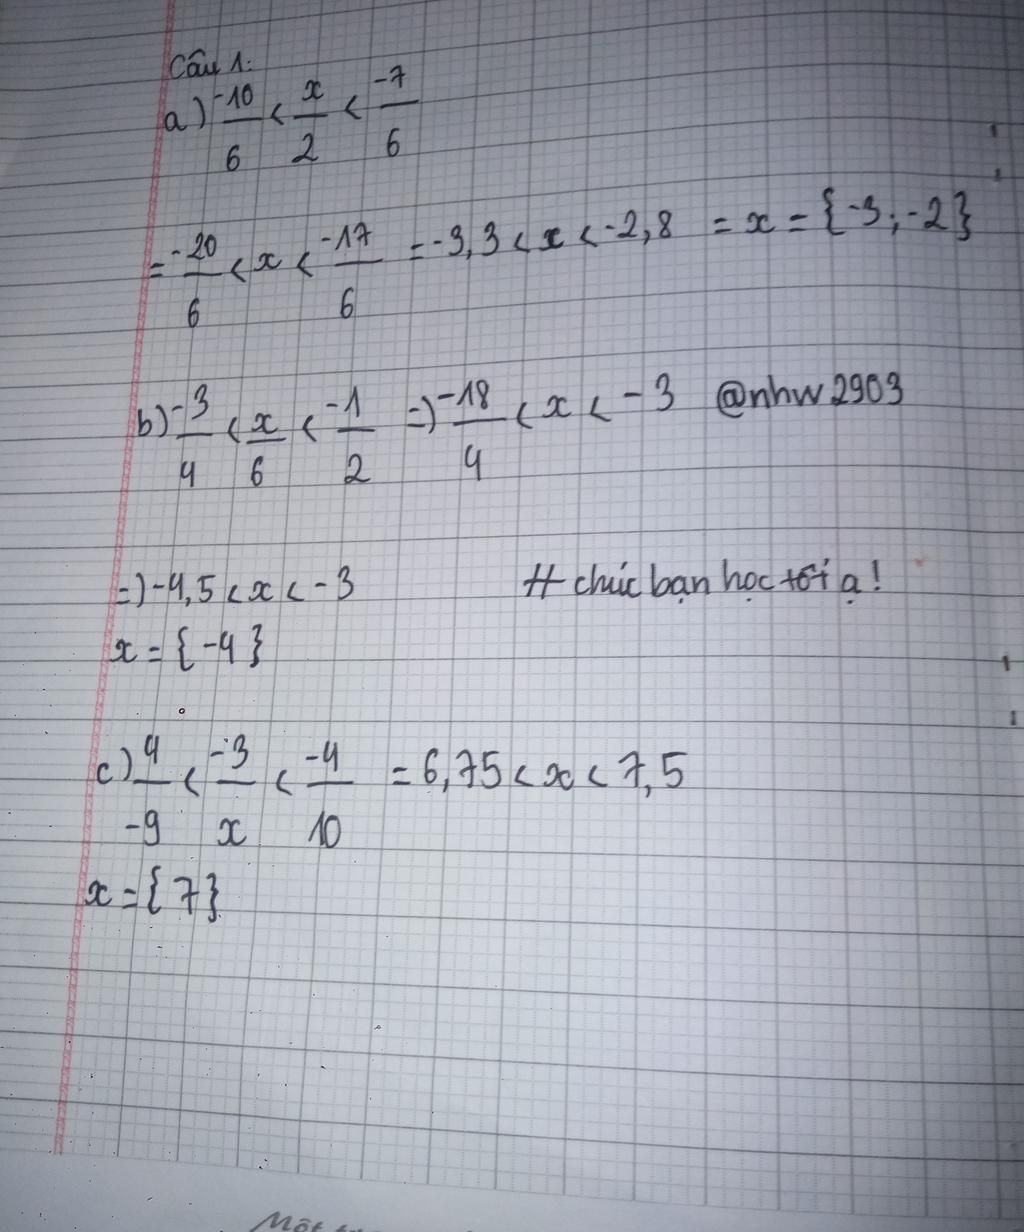 Câu 1:
a) -10/6 < x/2 < -7/6
= -20/6 < x < -17/6 = -3,3 < x < -2,8 = x = {-3; -2}
b) -3/4 < x/6 < -1/2 =) -18/4 < x < -3 @nhw2903
=) -4,5 < x < -3 # chúc bạn học tốt ạ!
x = {-4}
c) 4/-9 < -3/x < -4/10 = 6,75 < x < 7,5
x = {7}
Một